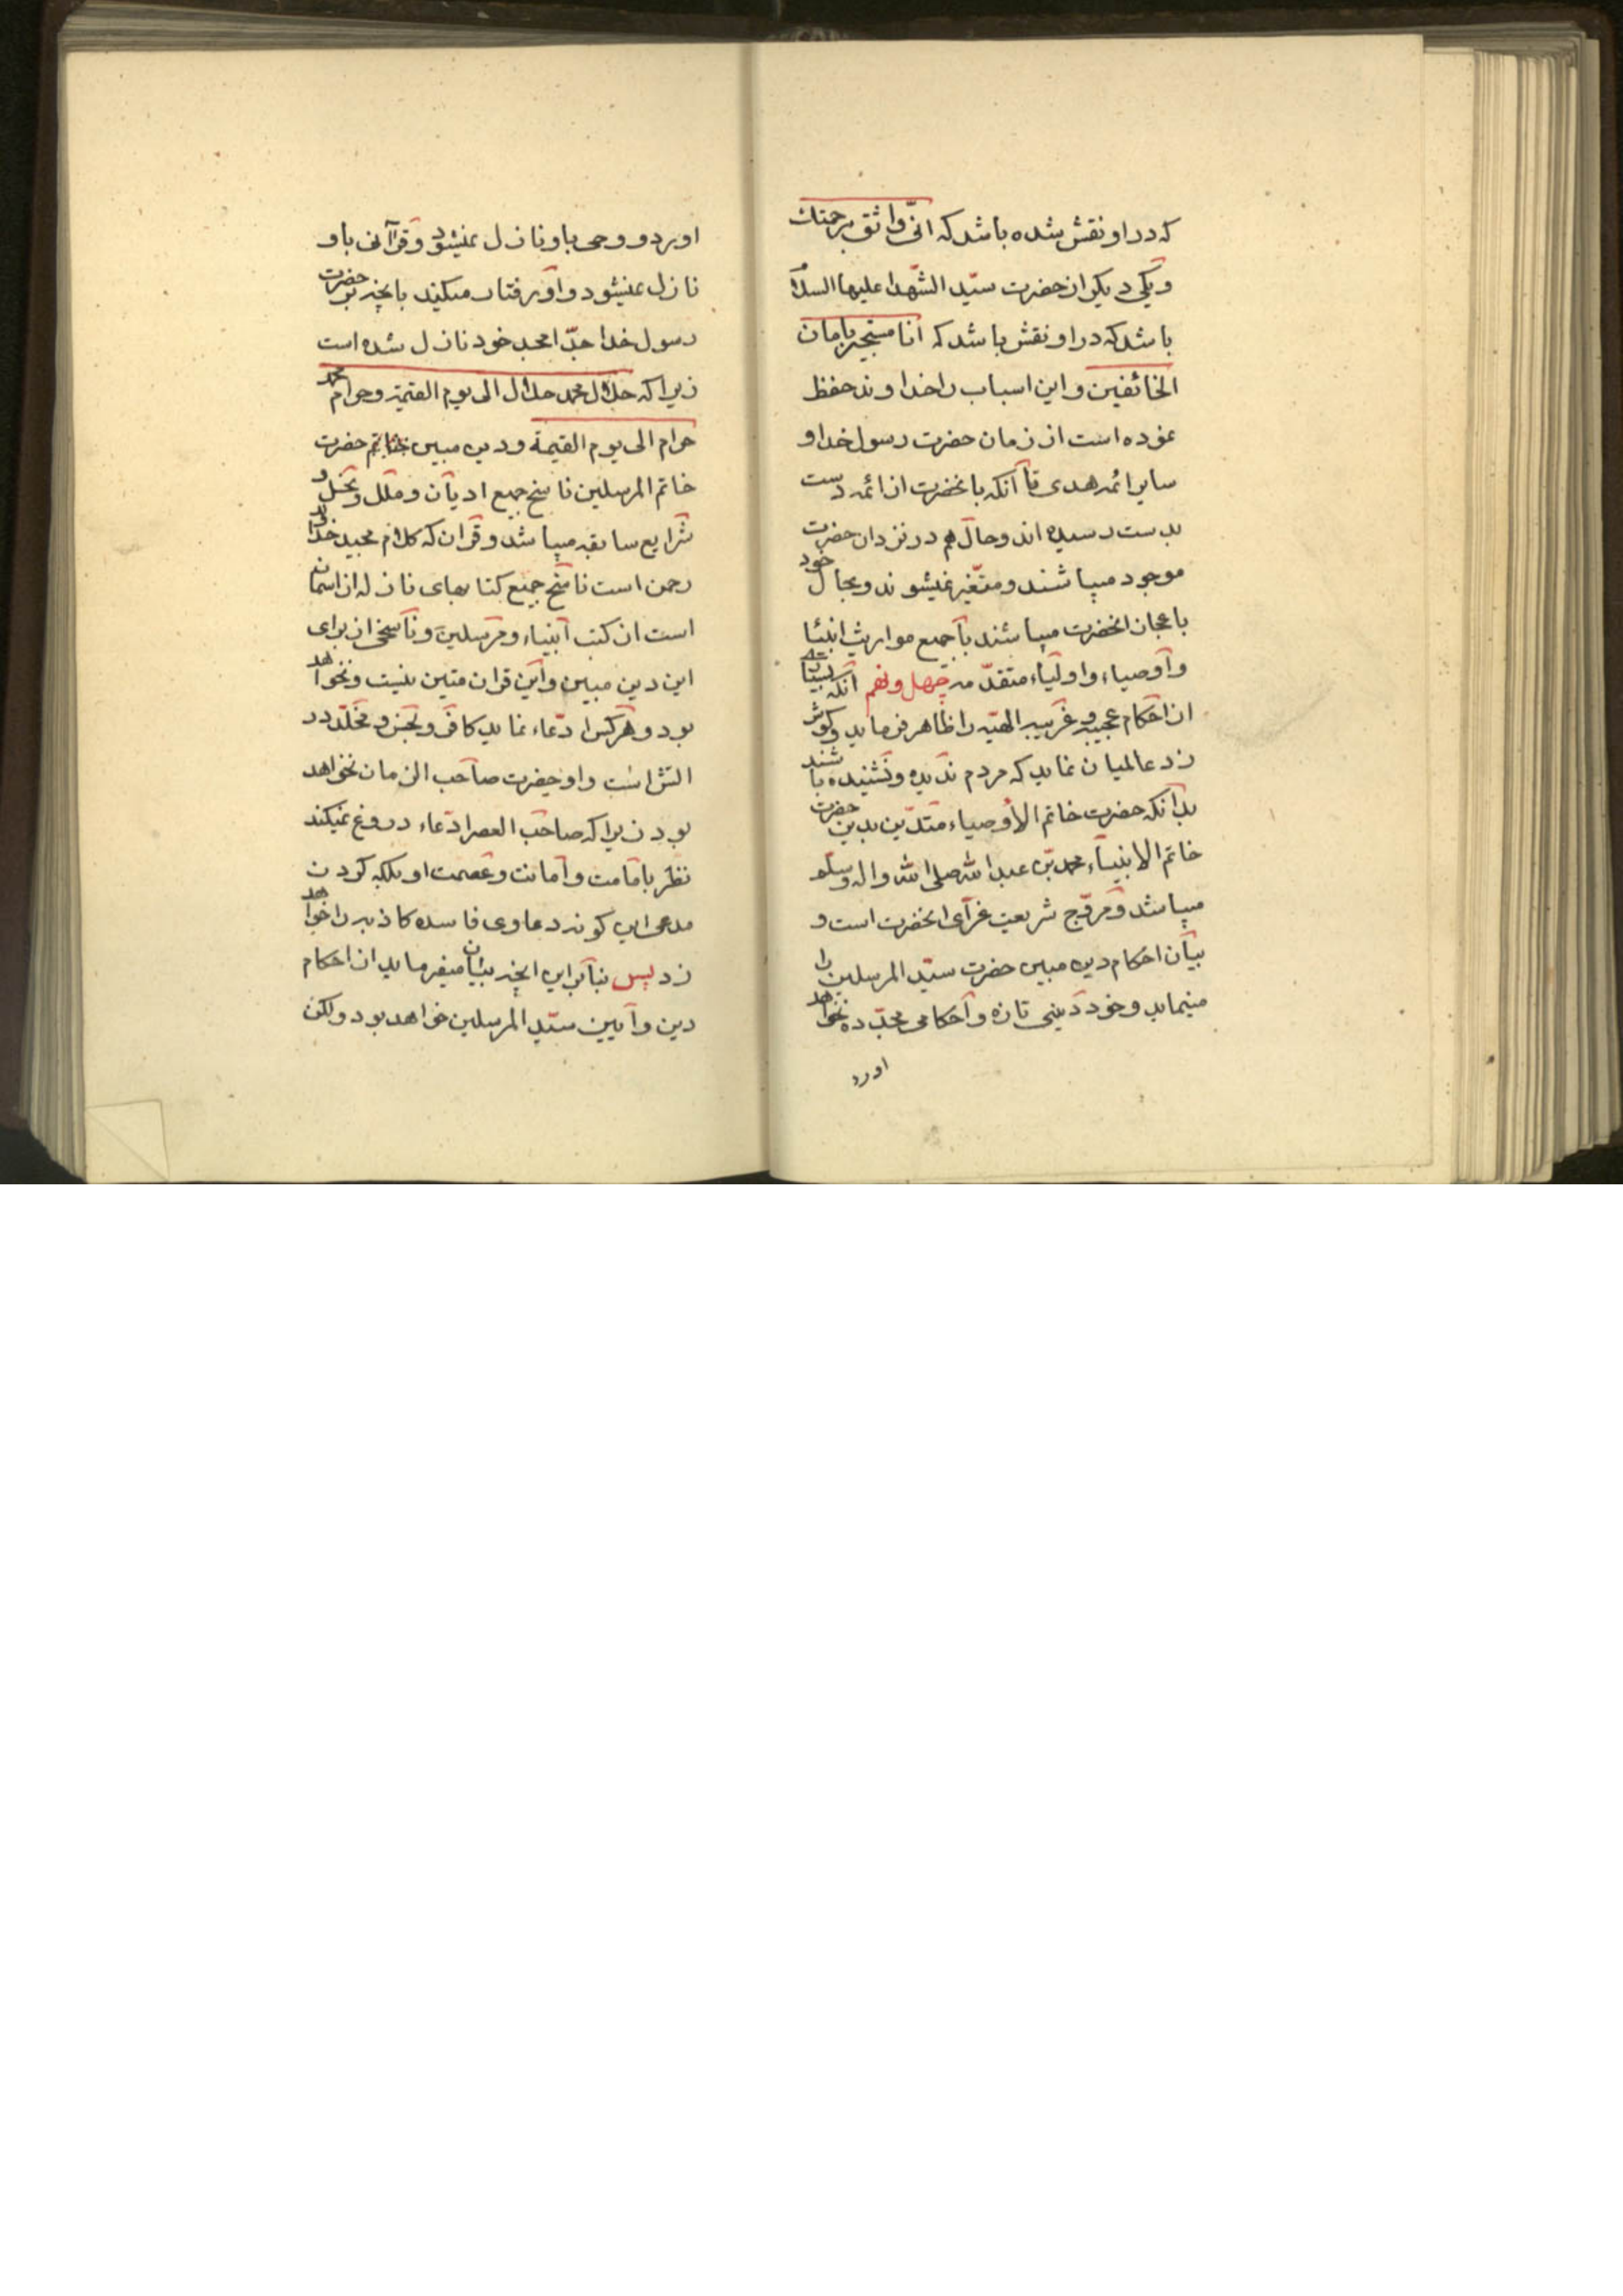 که در او نقش شده باشد که انّی واثق برحمتك
و یکی دیکر از حضرت سیّد الشّهدا علیها السلام
باشد که در او نقش باشد که انا مستجیر بامان
الخائفین و این اسباب را خداوند حفظ
نموده است از زمان حضرت رسول خدا و
سایر ائمه هدی تا آنکه بانحضرت از ائمه دست
بدست رسیده اند و حال هم در نزد ان حضرت
موجود میباشند و متغّیر نمیشوند و بحال خود
باعجاز انحضرت میباشند با جمیع مواریث انبیا
و اوصیاء و اولیاء متقدّمه چهل و نهم آنکه
از احکام عجیبه و غریبه الهیّه را ظاهر فرماید و کوش
زد عالمیان نماید که مردم ندیده و نشنیده باشند
بدآنکه حضرت خاتم الأوصیاء متدّین بدین حضرت
خاتم الانبیاء محمد بن عبد الله صلی الله واله وسلم
میباشد و مروّج شریعت غرّای انحضرت است و
بیان احکام دین مبین حضرت سیّد المرسلین را
مینماید و خود دینی تازه و احکامی مجدّده نخواهد
اورد
اورد و وحی باو نازل نمیشود و قرآنی باو
نازل نمیشود و او رفتار میکند بانچه بر حضرت
رسول خدا جدّ امجد خود نازل شده است
زیرا که حلال محمد حلال الی یوم القیمة و حرام محمد
حرام الی یوم القیمة و دین مبین حضرت
خاتم المرسلین ناسخ جمیع ادیان و ملل و نحل و
شرایع سابقه میباشد و قران که کلام مجید خداوند
رحمن است ناسخ جمیع کتابهای نازله از اسمان
است از کتب انبیاء و مرسلین و ناسخی از برای
این دین مبین و این قران متین نیست و نخواهد
بود و هر کس ادّعاء نماید کافر و نجس و مخلّد در
اتش است و او حضرت صاحب الزمان نخواهد
بود زیرا که صاحب العصر ادّعاء دروغ نمیکند
نظر بامامت و امانت و عصمت او بلکه کردن
مدعی این کونه دعاوی فاسده کاذبه را خواهد
زد پس بنآبر این انچه بیان میفرماید از احکام
دین و آیین سیّد المرسلین خواهد بود ولکن